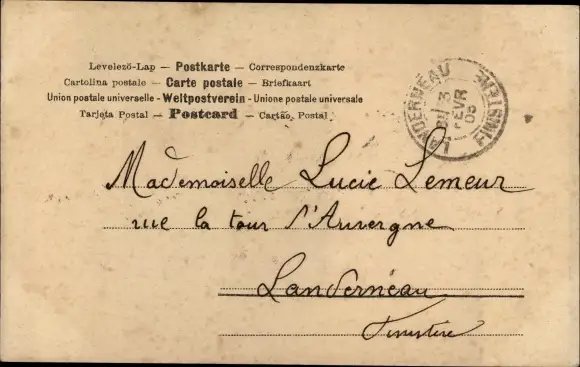 Levelező-Lap — Postkarte — Correspondenzkarte
Cartolina postale — Carte postale — Briefkaart
Union postale universelle - Weltpostverein - Unione postale universale
Tarjeta Postal — Postcard — Cartão Postal.
LANDERNEAU
3
FEVR
05
FINISTERE
Mademoiselle Lucie Lemeur
rue la tour d'Auvergne
Landerneau
Finistère